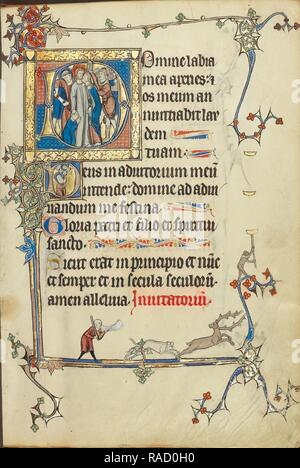 Domine labia
mea aperies: &
os meum an
nuntiabit lau
dem
tuam.
Deus in adiutorium meũ
intende: domine ad adiu
uandum me festina.
Gloria patri et filio et spiritui
sancto.
Sicut erat in principio et nũc
et semper et in secula seculorũ
amen alleluia. Inuitatoriũ.
alamy
Image ID: RAD0H0
www.alamy.com